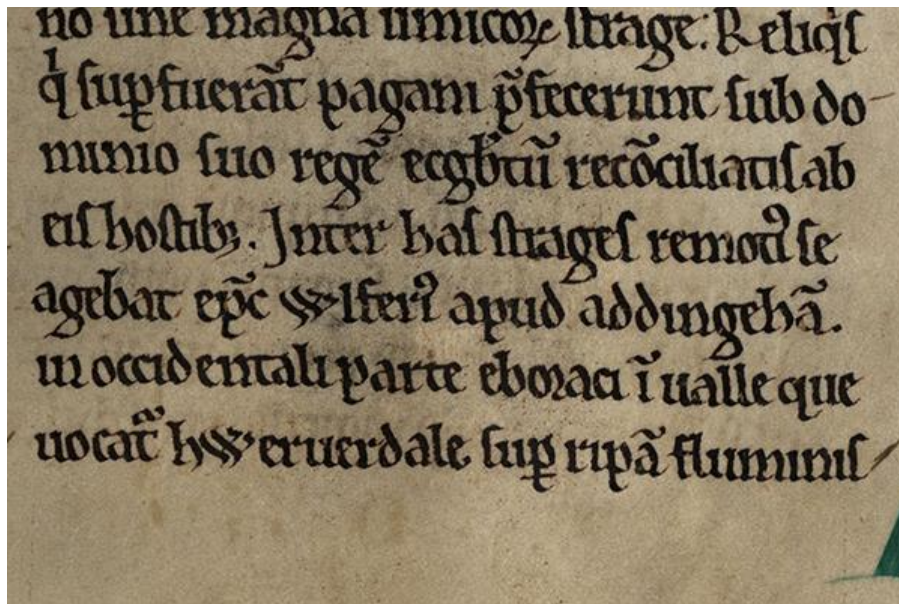 no sine magna inimicoꝝ strage. Reliqis
qͥ suꝑfuerāt pagani p̄fecerunt sub do-
minio suo regē ecgb̄tū recōciliatis ab
eis hostibꝫ. Inter has strages remotꝰ se
agebat ep̄c wlferiꝰ apud addingehā.
in occidentali parte eboraci ī ualle que
uocat̄ hweruerdale suꝑ ripā fluminis